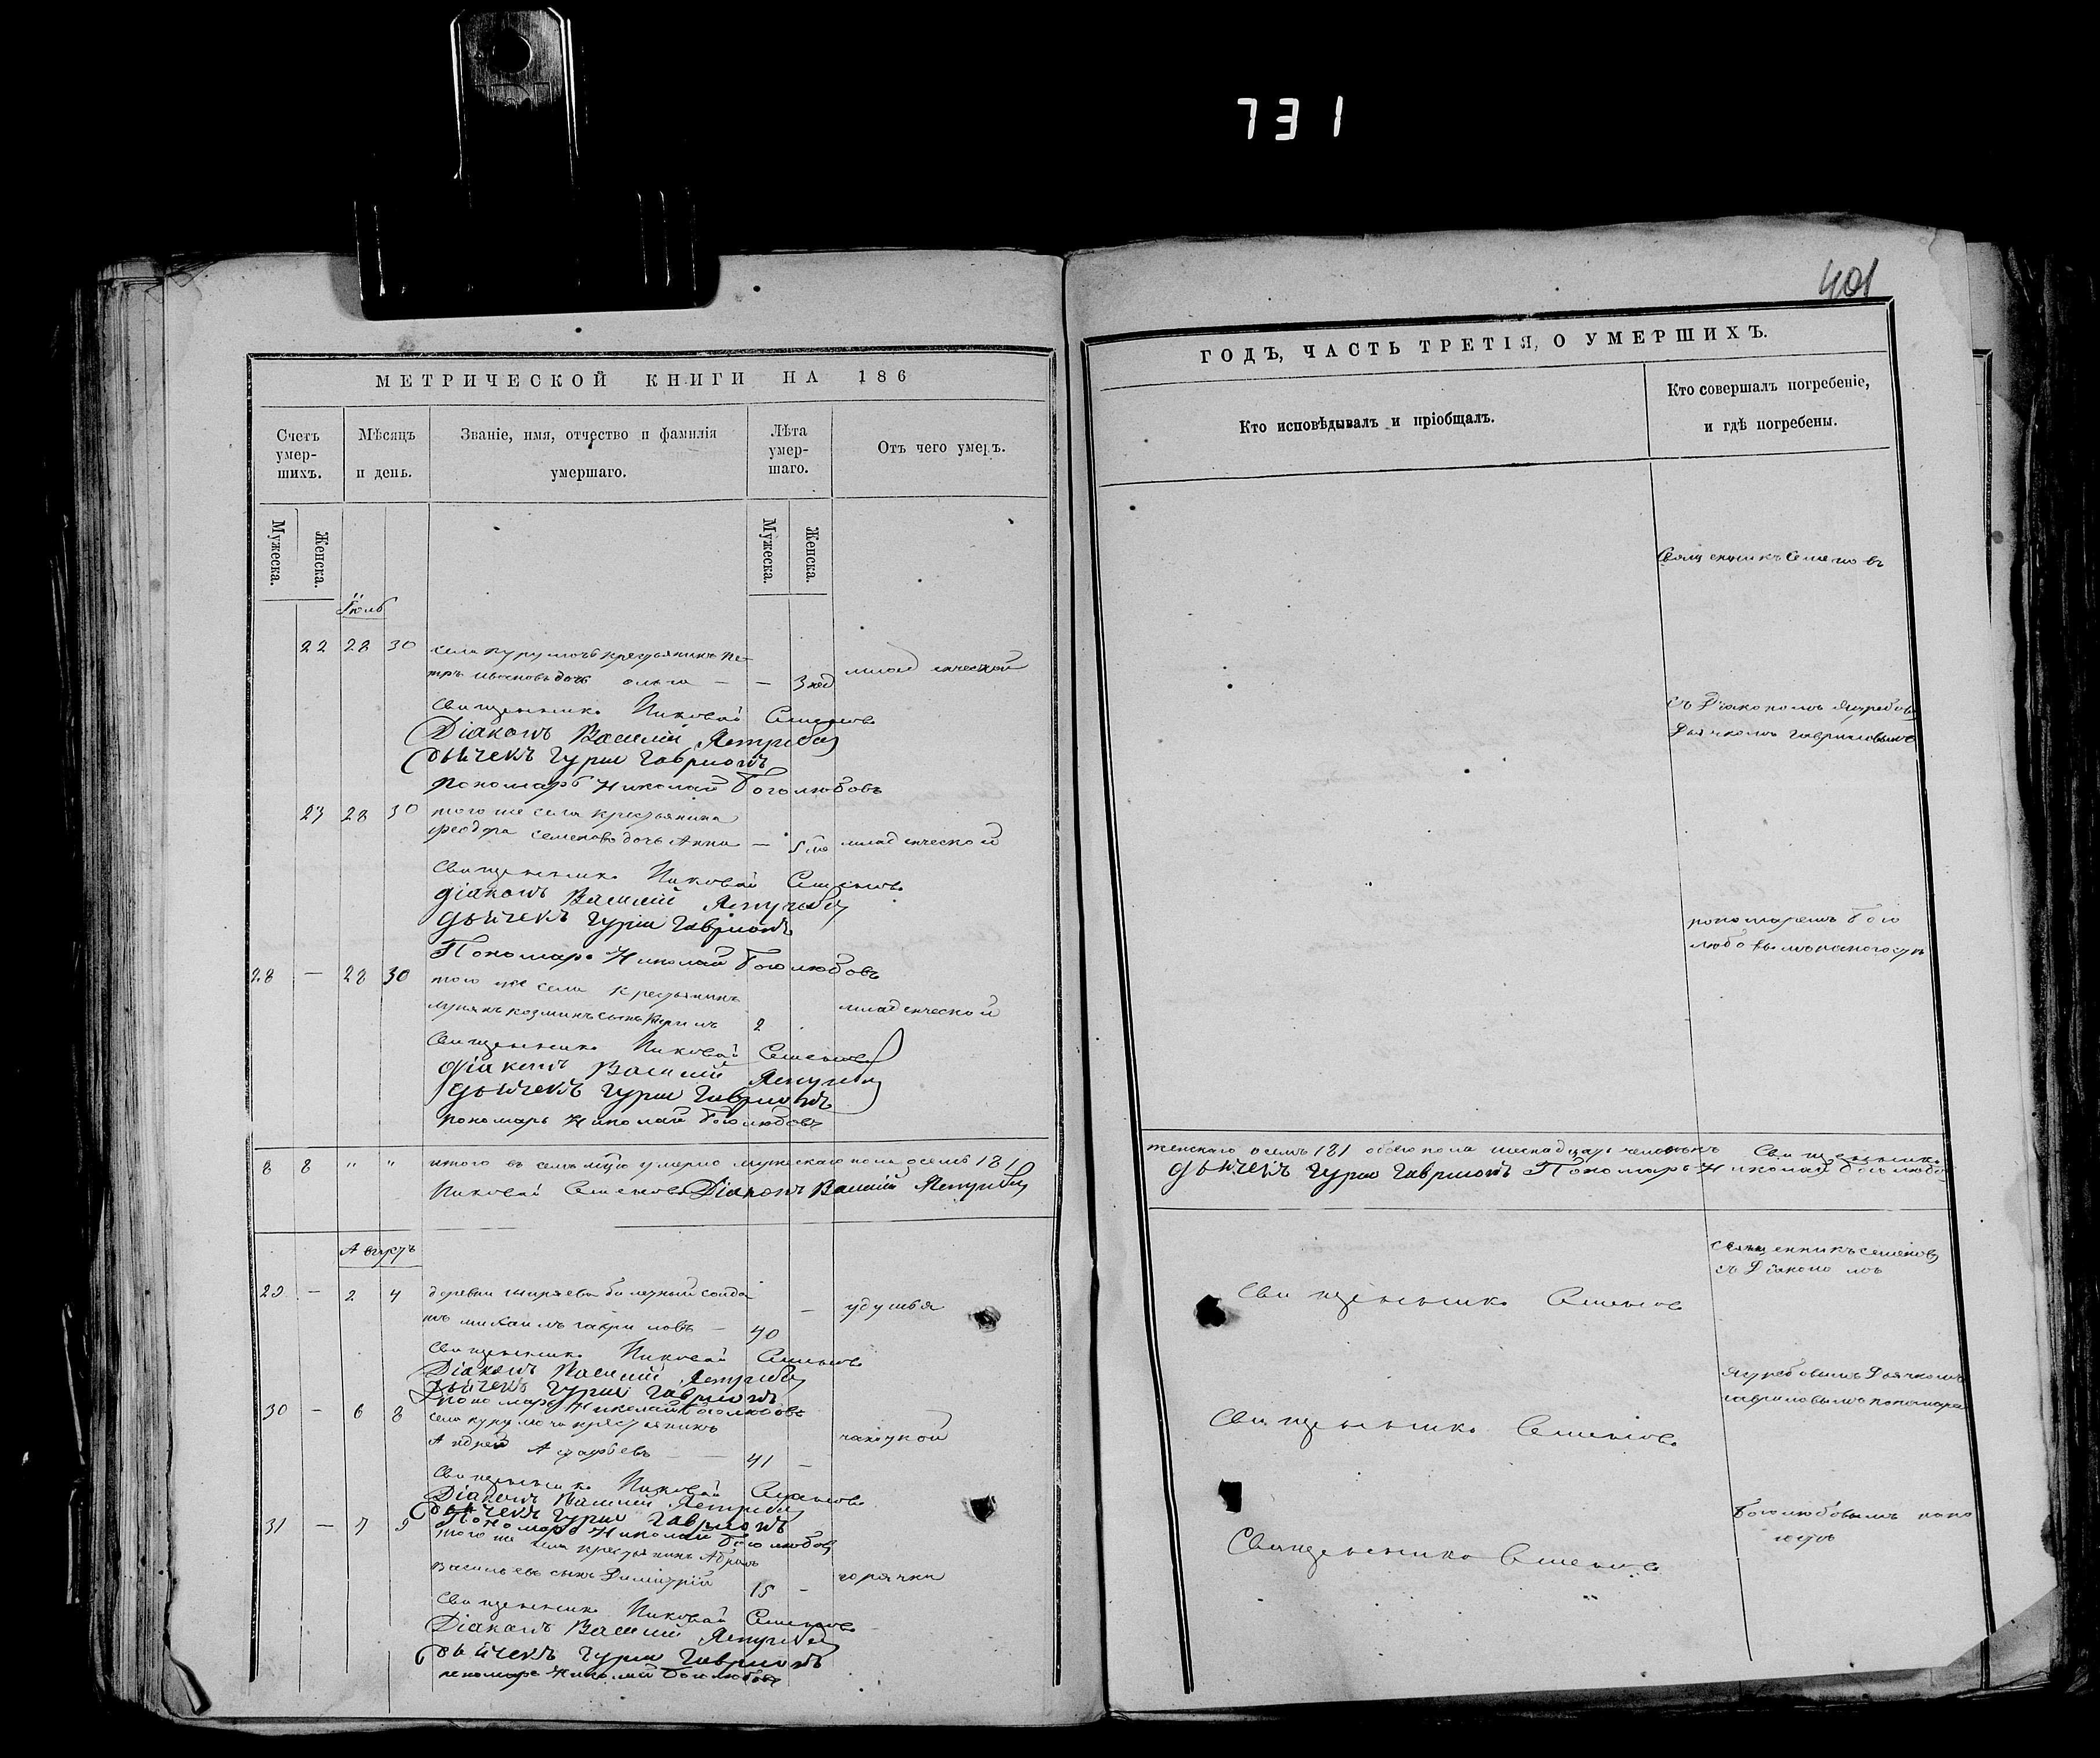 731
401
МЕТРИЧЕСКОЙ КНИГИ НА 186
Счетъ умер-шихъ.
Мѣсяцъ и день.
Званіе, имя, отчество и фамилія умершаго.
Лѣта умер-шаго.
Отъ чего умеръ.
Мужеска.
Женска.
Мужеска.
Женска.
Іюль
22 28 30 села крестьянина Пе-
тра Иванова дочь Ольга — — 3 нед младенческой
Священникъ Николай Семеновъ
Діаконъ Василій Ястребовъ
Дьячекъ Гурій Гавриловъ
Пономарь Николай Боголюбовъ
23 28 30 того же села крестьянина
Феодора Семенова дочь Анна — младенческой
Священникъ Николай Семеновъ
Діаконъ Василій Ястребовъ
Дьячекъ Гурій Гавриловъ
Пономарь Николай Боголюбовъ
28 — 28 30 того же села крестьянинъ
Козминъ сынъ 2 младенческой
Священникъ Николай Семеновъ
Діаконъ Василій Ястребовъ
Дьячекъ Гурій Гавриловъ
Пономарь Николай Боголюбовъ
8 8 " " итого въ умерло мужескаго пола осемь /8/
Николай Семеновъ Діаконъ Василій Ястребовъ
Августъ
29 — 2 4 деревни солда
тъ Михаилъ Гавриловъ — 40 — удушья
Священникъ Николай Семеновъ
Діаконъ Василій Ястребовъ
Дьячекъ Гурій Гавриловъ
Пономарь Николай Боголюбовъ
30 — 6 8 села крестьянинъ
Андрей — 41 — чахоткой
Священникъ Николай Семеновъ
Діаконъ Василій Ястребовъ
Дьячекъ Гурій Гавриловъ
Пономарь Николай Боголюбовъ
31 — 7 9 того же села крестьянинъ
Васильевъ сынъ Димитрій 15 — горячки
Священникъ Николай Семеновъ
Діаконъ Василій Ястребовъ
Дьячекъ Гурій Гавриловъ
Пономарь Николай Боголюбовъ
ГОДЪ, ЧАСТЬ ТРЕТІЯ, О УМЕРШИХЪ.
Кто исповѣдывалъ и пріобщалъ.
Кто совершалъ погребеніе,
и гдѣ погребены.
Священникъ Семеновъ
съ Діакономъ Ястребов
Дьячкомъ Гавриловымъ
пономаремъ Бого
любовымъ на погостѣ
женскаго осемь /8/ обоего пола шеснадцать человѣкъ Священникъ
Дьячекъ Гурій Гавриловъ Пономарь Николай Боголюбо
Священникъ Семеновъ
съ Діакономъ
Священникъ Семеновъ
Ястребовымъ Дьячкомъ
Гавриловымъ пономаре
Священникъ Семеновъ
Боголюбовымъ на по
гостѣ
Священникъ Семеновъ